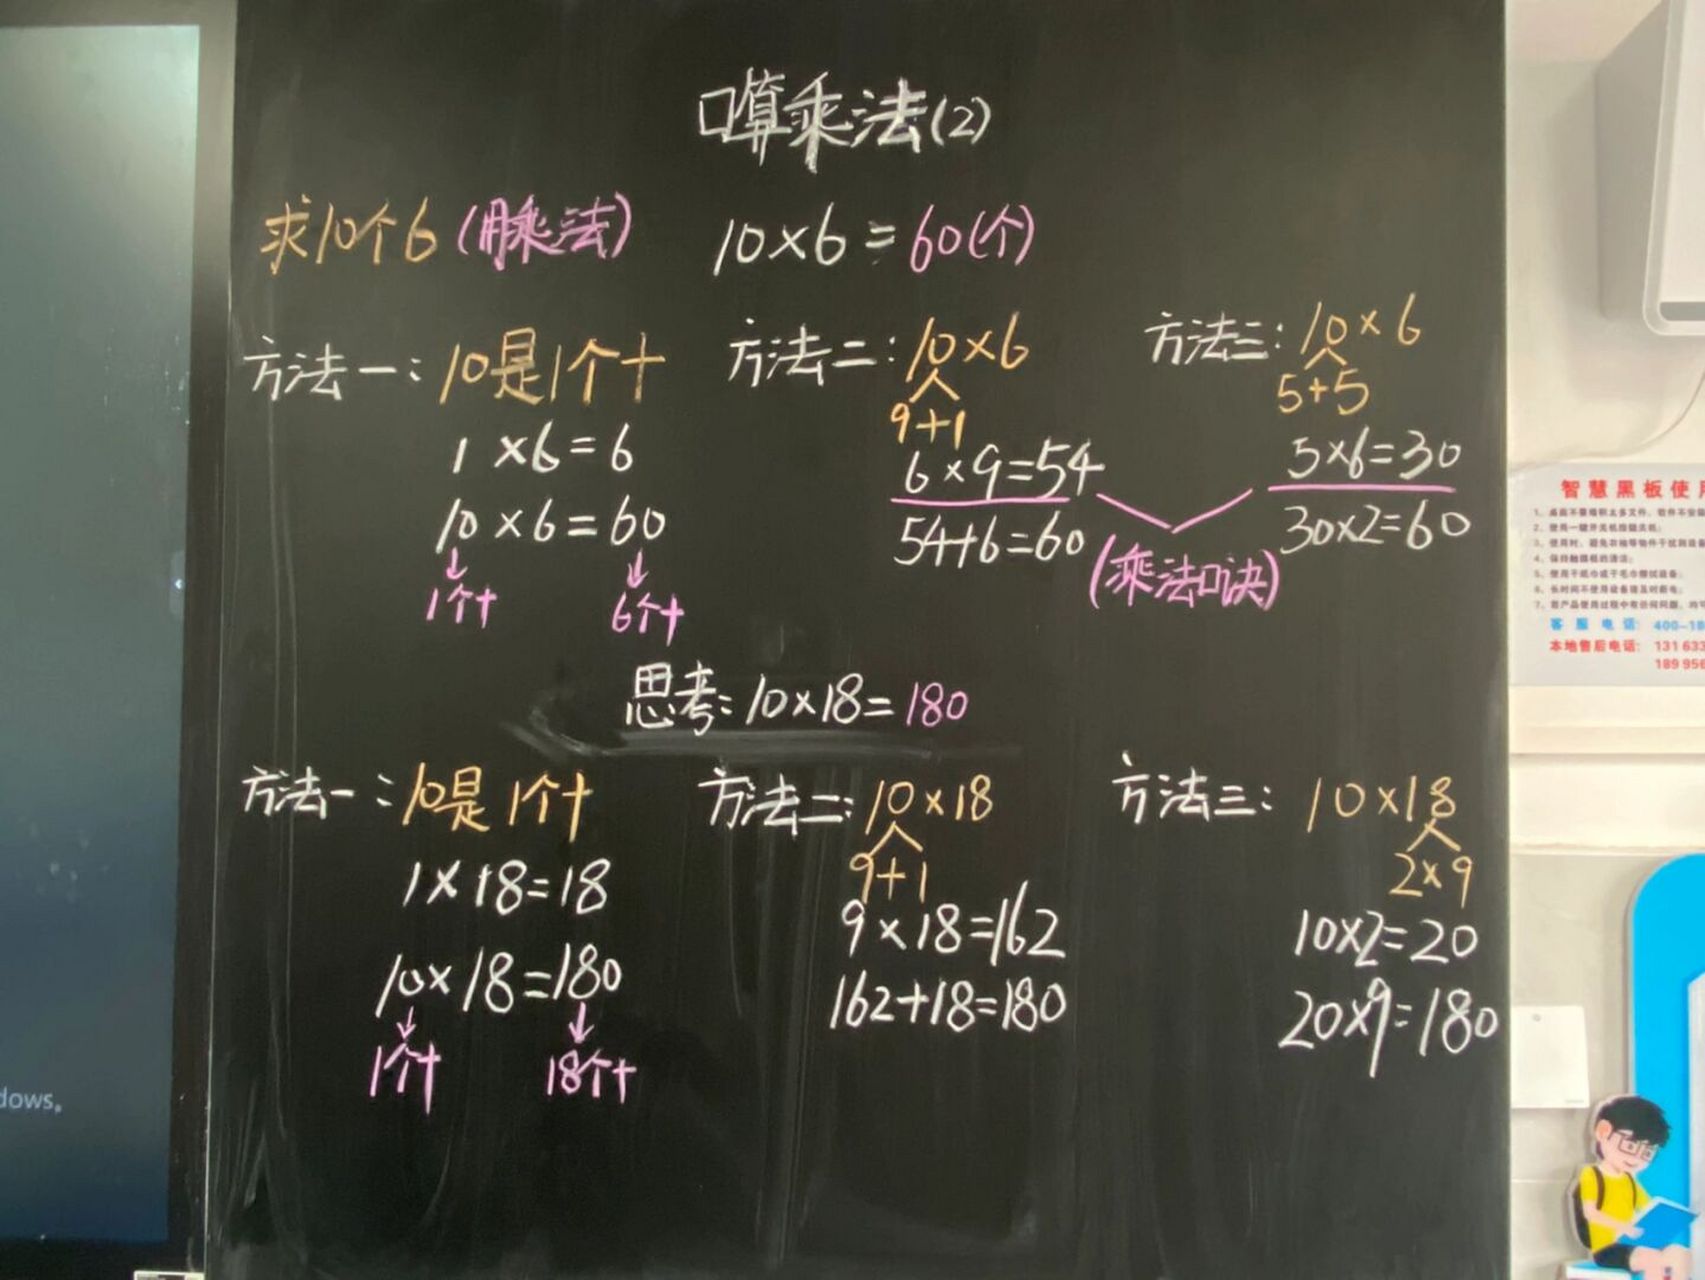 口算乘法(2)
求10个6(用乘法) 10×6=60(个)
方法一:10是1个十
1×6=6
10×6=60
1个十 6个十
方法二:10×6
9+1
6×9=54
54+6=60
方法三:10×6
5+5
5×6=30
30×2=60
(乘法口诀)
思考:10×18=180
方法一:10是1个十
1×18=18
10×18=180
1个十 18个十
方法二:10×18
9+1
9×18=162
162+18=180
方法三:10×18
2×9
10×2=20
20×9=180
dows。
智慧黑板使用
客服电话: 400-18
本地售后电话: 131 633
189 956